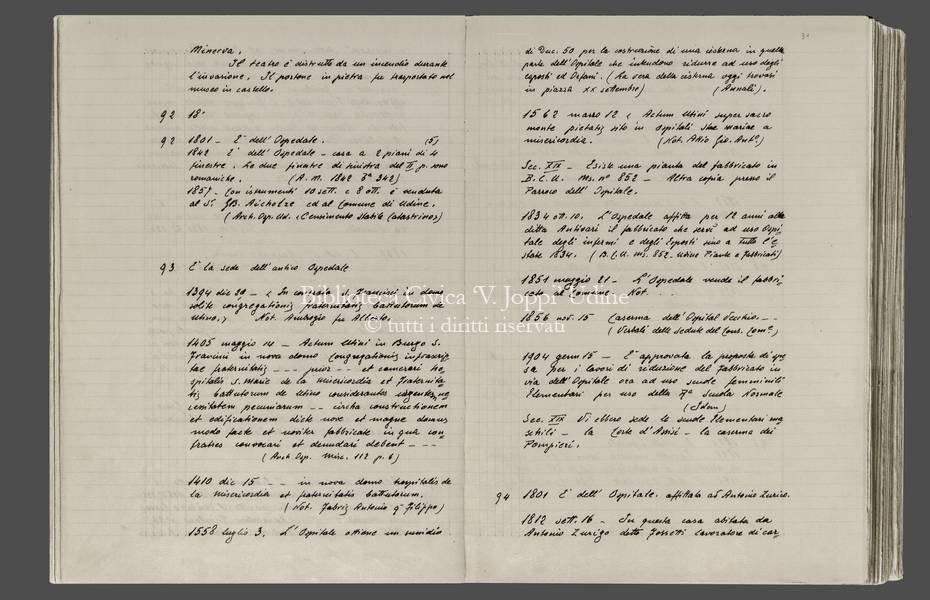 Minerva.
Il teatro è distrutto da un incendio durante
l'invasione. Il portone in pietra fu trasportato nel
museo in castello.
92 18'
92 1801 - E' dell'Ospedale. (5)
1842 E' dell'Ospedale - casa a 2 piani di 4
finestre. Le due finestre di sinistra del II p. sono
romaniche. (A. M. 1842 342)
1857 - Con istrumenti 10 sett. e 8 ott. è venduta
al S. GB. Aicholze ed al Comune di Udine.
(Arch. Osp. Ud. Censimento stabile Catastrino)
93 E' la sede dell'antico Ospedale
1394 dic 29 - In contrata S. Francisci in domo
solite congregationis fraternitatis battutorum de
Utino. Not. Ambrogio fu Alberto.
1405 maggio 14 - Actum Utini in Burgo S.
Francisci in nova domo Congregationis infrascrip
tae fraternitatis --- prior -- et camerari ho
spitalis S. Marie de la misericordia et fraternita
tis battutorum de Utino considerantes urgentes ne
cessitatem pecuniarum -- circha constructionem
et edificationem dicte nove et magne domus
modo facte et noviter fabbricate in qua con
fratres convocari et denudari debent - ---
(Arch Osp. Misc. 112 p. 6)
1410 dic 15 - -- in nova domo hospitalis de
la misericordia et fraternitatis battutorum.
(Not. Fabris Antonio q Filippo)
1558 luglio 3. L'Ospitale ottiene un sussidio
di Duc. 50 per la costruzione di una cisterna in quella
parte dell'Ospitale che intendono ridurre ad uso degli
esposti ed Orfani. (La vera della cisterna oggi trovasi
in piazza XX settembre) (Annali).
1562 marzo 12 Actum Utini super sacro
monte pietatis sito in Ospitali Stae Mariae a
misericordia. (Not. Gio. Ant.)
Sec. XIX - Esiste una pianta del fabbricato in
B.C.U. Ms. n° 852 - Altra copia presso il
Parroco dell'Ospitale.
1834 ott. 10. L'Ospedale affitta per 12 anni alla
ditta Antivari il fabbricato che servì ad uso Ospi
tale degli infermi e degli Esposti sino a tutto l'e
state 1834. (B.C.U. Ms. 852. Udine Piante e Fabbricati)
1851 maggio 21 - L'Ospedale vende il fabbri
cato al Comune. Not.
1856 nov. 15 Caserma dell'Ospital Vecchio. --
(Verbali delle Sedute del Cons. Com.)
1904 genn 15 - E' approvata la proposta di spe
sa per i lavori di riduzione del fabbricato in
via dell'Ospitale ora ad uso scuole femminili
Elementari per uso della Scuola Normale
(Idem)
Sec. XIX Vi ebbero sede le scuole Elementari ma
schili - la Corte d'Assisi - la caserma dei
Pompieri.
94 1801 E' dell'Ospitale. affittata ad Antonio Zurico.
1812 sett. 16 - In questa casa abitata da
Antonio Zurigo detto Fossetti lavoratore di car
Biblioteca Civica "V. Joppi" Udine
© tutti i diritti riservati